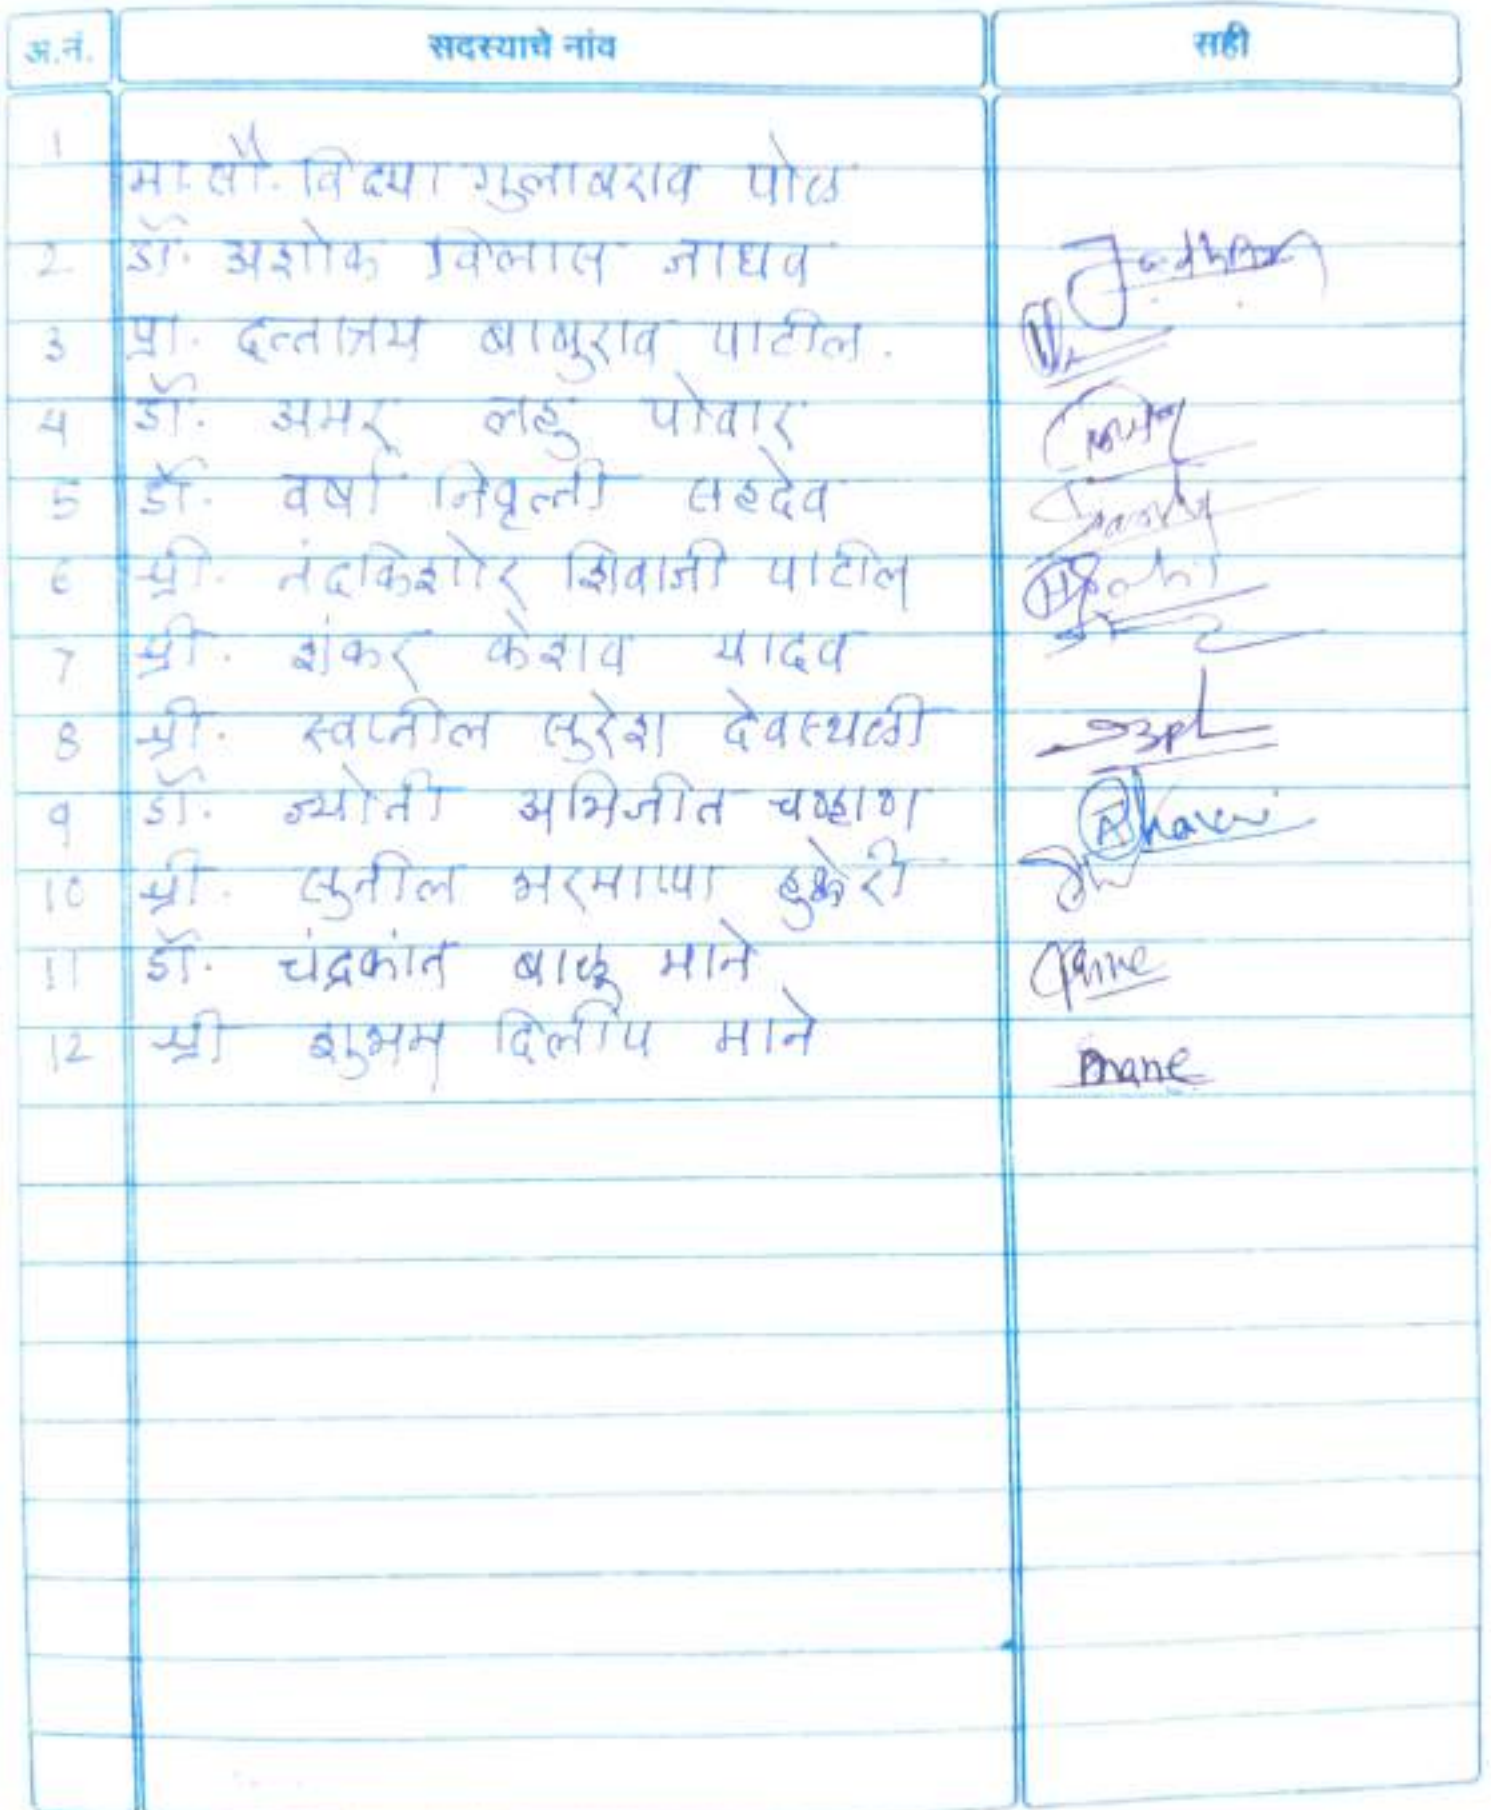 अ.नं. सदस्याचे नांव सही
1
मा. सौ. विद्या गुलाबराव पोळ
2 डॉ. अशोक विलास जाधव Jadhav
3 प्रा. दत्तात्रय बाबुराव पाटील.
4 डॉ. अमर लहु पोवार
5 डॉ. वर्षा निवृत्ती सहदेव
6 श्री. नंदकिशोर शिवाजी पाटील
7 श्री. शंकर केशव यादव
8 श्री. स्वप्नील सुरेश देवस्थळी
9 डॉ. ज्योती अभिजीत चव्हाण
10 श्री. सुनील भरमाप्पा हुक्केरी
11 डॉ. चंद्रकांत बाळू माने
12 श्री शुभम दिलीप माने mane